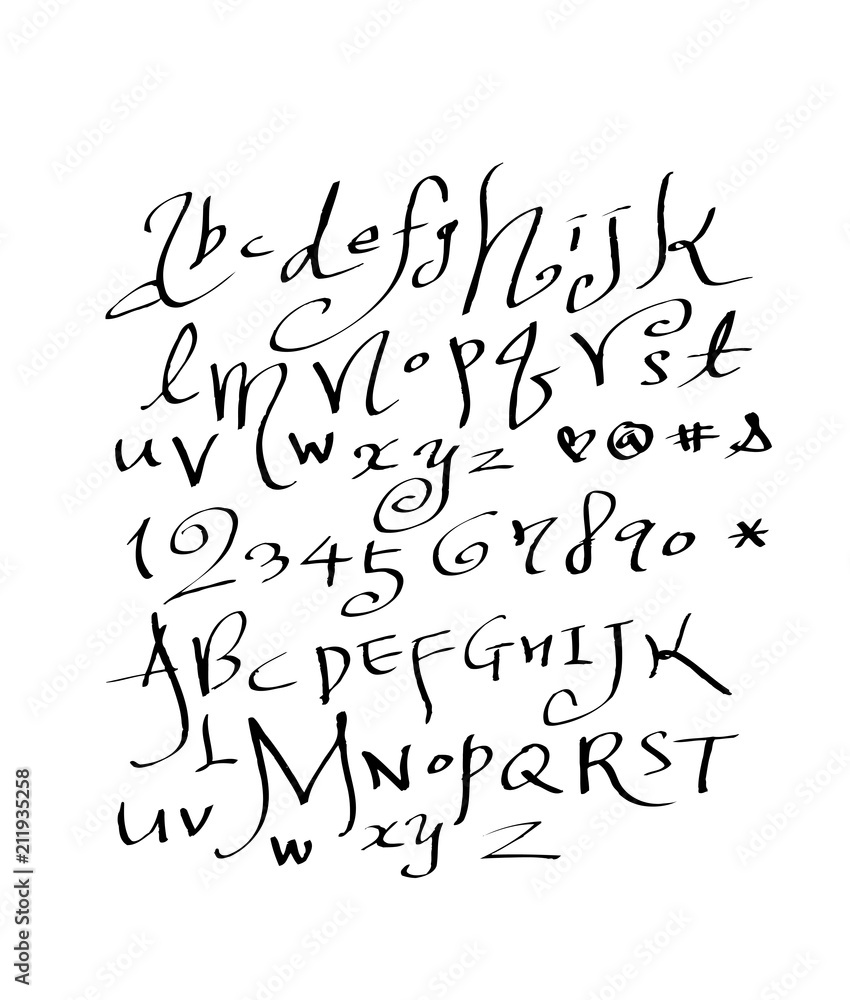 a b c d e f g h i j k
l m n o p q r s t
u v w x y z ♥ @ # &
1 2 3 4 5 6 7 8 9 0 *
A B C D E F G H I J K
L M N O P Q R S T
U V W X Y Z
Adobe Stock | #211935258